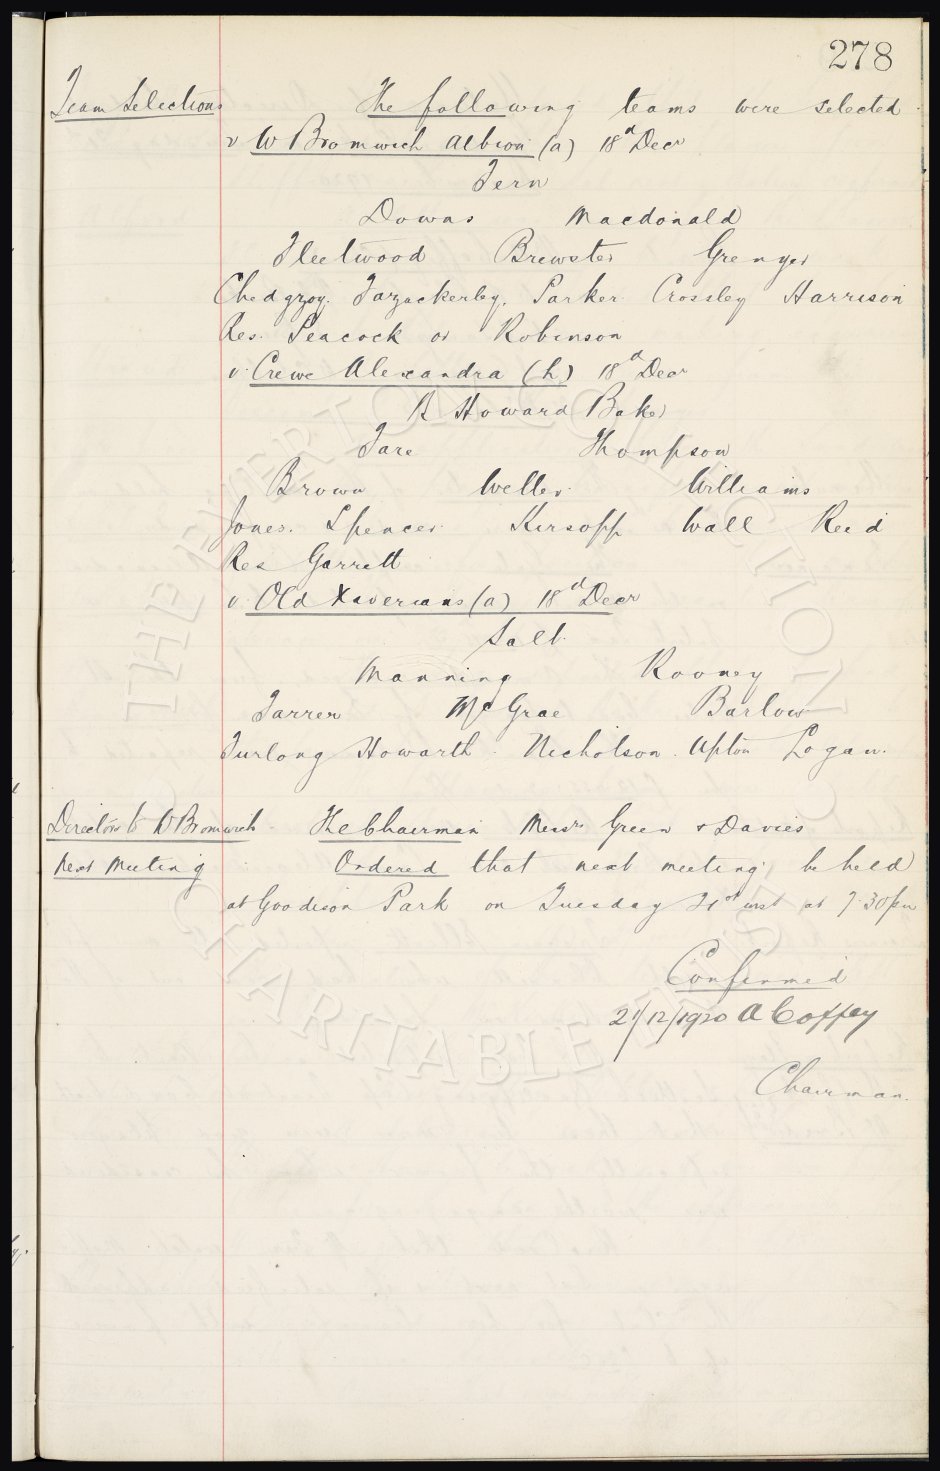 278
Team Selections The following teams were selected
v W Bromwich Albion (a) 18th Decr
Fern
Downs Macdonald
Fleetwood Brewster Grenyer
Chedgzoy. Fazackerley. Parker Crossley Harrison
Res. Peacock or Robinson
v. Crewe Alexandra (h) 18th Decr
B Howard Baker
Fare Thompson
Brown Weller Williams
Jones. Spencer Kirsopp Wall Reid
Res Garrett
v. Old Xaverians (a) 18th Decr
Salt.
Manning Rooney
Farrer McGrae Barlow
Furlong Howarth. Nicholson. Upton Logan.
Directors to W Bromwich. The Chairman Messrs Green & Davies
Next Meeting Ordered that next meeting be held
at Goodison Park on Tuesday 21st inst at 7.30pm
Confirmed
21/12/1920 A Coffey
Chairman.
THE EVERTON COLLECTION
CHARITABLE TRUST